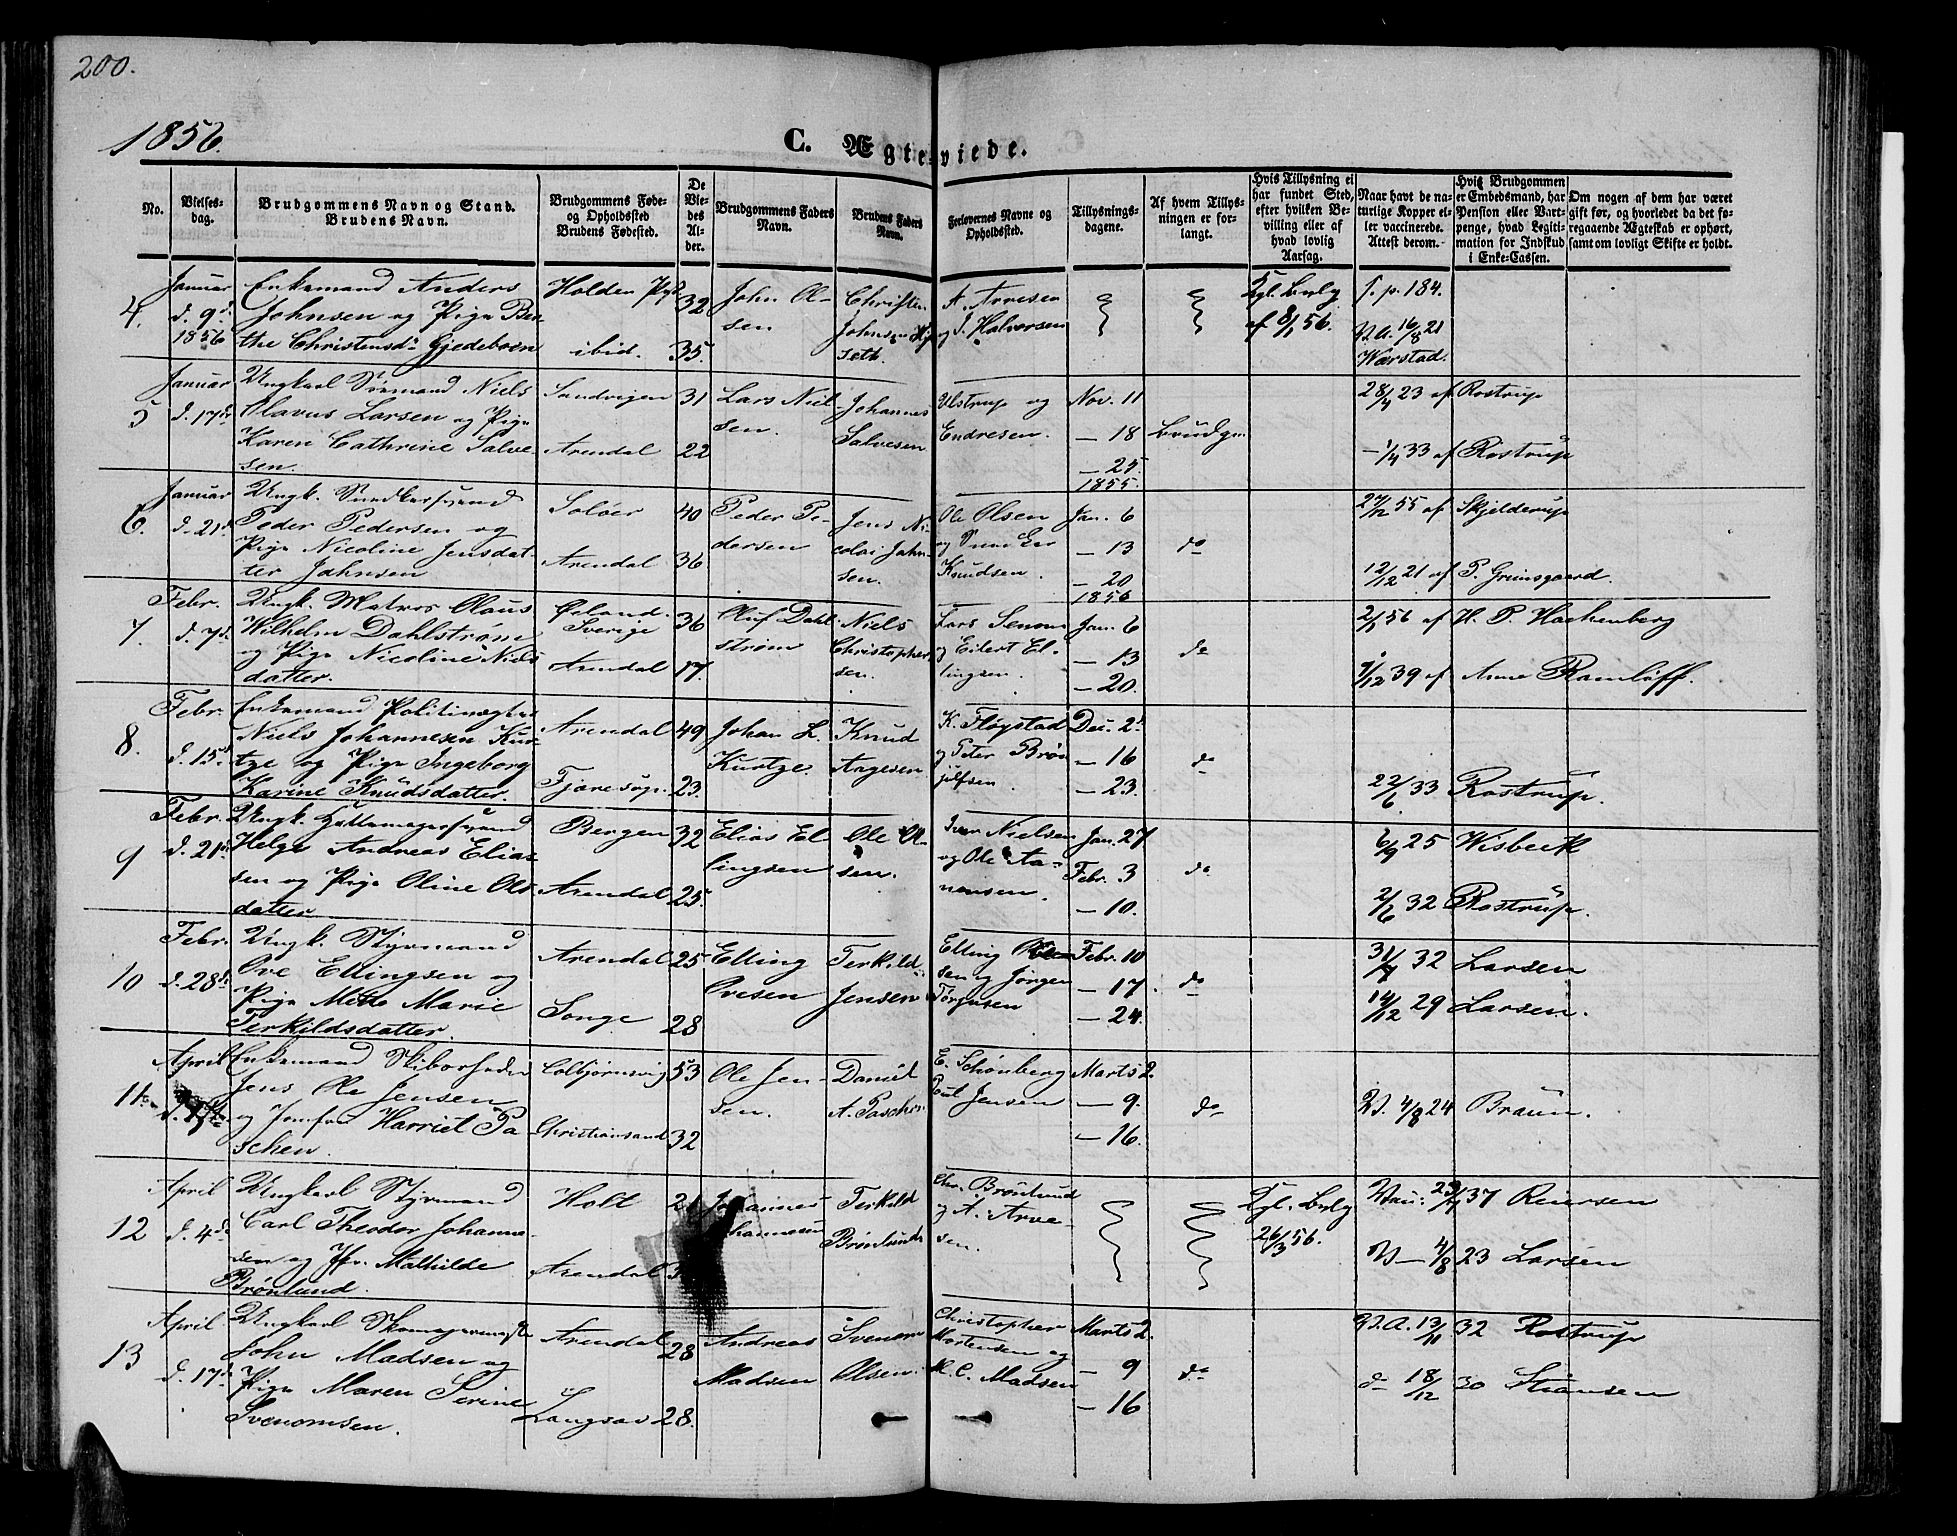 200.
1856.
C. Ægteviede.
No.
Vielsesdag.
Brudgommens Navn og Stand.
Brudens Navn.
Brudgommens Føde-
og Opholdssted
Brudens Fødested.
De
Vie-
des
Al-
der.
Brudgommens Faders
Navn.
Brudens Faders
Navn.
Forlovernes Navne og
Opholdssted.
Tillysnings-
dagene.
Af hvem Tillys-
ningen er for-
langt.
Hvis Tillysning ei
har fundet Sted,
efter hvilken Be-
villing eller af
hvad lovlig
Aarsag.
Naar havt de na-
turlige Kopper el-
ler vaccinerede.
Attest derom.
Hvis Brudgommen
er Embedsmand, har
Pension eller Vart-
penge, hvad Legiti-
mation for Indskud
i Enke-Cassen.
Om nogen af dem har været
gift før, og hvorledet da det fo-
regaaende Ægteskab er ophørt,
samt om lovligt Skifte er holdt.
4.
Januar
d. 9d
1856
Enkemand Anders
Johnsen og Pige Ber-
the Christensd. Gjedeboen
Holden Pgt
ibid.
32
35.
John Ol-
sen
Christen
Johnsen
A. Arvesen
og J. Halvorsen
Kgl. Bvlg
af 8/1 56.
f. p. 184.
V. A. 16/8 21
Warstad.
5
Januar
d. 17d
Ungkarl Sømand Niels
Olavus Larsen og Pige
Karen Cathrine Salve-
sen.
Sandvigen
Arendal
31
22
Lars Niel-
sen.
Johannes
Salvesen
Ulstrup og
Endresen.
Nov. 11
— 18
— 25
1855.
Brudgm
28/4 23 af Rostrup
— 1/4 33 af Rostrup
6.
Januar
d. 21d
Ungk. Snedkersvend
Peder Pedersen og
Pige Nicoline Jensdat-
ter Jahnsen
Soløer
Arendal
40
36
Peder Pe-
dersen
Jens Ni-
colai Jahn-
sen.
Ole Olsen
og
Knudsen.
Jan. 6
— 13
— 20
1856
do
27/12 55 af Skjelderup
12/12 21 af P. Grimsgaard.
7.
Febr.
d. 7d
Ungk. Matros Olaus
Wilhelm Dahlstrøm
og Pige Nicoline Niels-
datter.
Øland
Sverige
Arendal
36
17.
Oluf Dahl-
strøm
Niels
Christopher-
sen.
Lars
og Eilert El-
lingsen.
Jan. 6
— 13
— 20.
do
2/1 56 af H. P. Hachenberg
1/12 39 af Anne Ramløff.
8.
Febr.
d. 15d
Enkemand Politivægter
Niels Johannesen Kur-
tze og Pige Ingeborg
Karine Knudsdatter.
Arendal
Fjære sogn.
49
23.
Johan L.
Kurtze.
Knud
Aagesen
K. Fløystad
og Peter Brøn-
julfsen.
Dec. 2.
— 16
— 23.
do
22/6 33 Rostrup.
9
Febr.
d. 21d
Ungk. Hattemagersvend
Helge Andreas Elias-
sen og Pige Oline Ols-
datter
Bergen
Arendal
32
25.
Elias El-
lingsen
Ole Ol-
sen.
Iver Nielsen
og Ole Aa-
nensen.
Jan. 27
Febr. 3
— 10.
do
6/9 25 Wisbeck
2/6 32 Rostrup.
10
Febr.
d. 28d
Ungk. Styrmand
Ove Ellingsen og
Pige Mette Marie
Terkildsdatter.
Arendal
Songe
25
28
Elling
Ovesen
Terkild
Jensen
Elling
sen og Jørgen
Tørgusen
Febr. 10
— 17.
— 24.
do
31/7 32 Larsen
14/12 29 Larsen.
11
April
Enkemand Skibsrheder
Jens Ole Jensen
og Jomfru Harriet Pa-
schen.
Colbjørnsvig
Christiansand
53
32
Ole Jen-
sen.
Daniel
A. Paschen
E. Schønberg
Jensen
Marts 2.
— 9.
— 16.
do
V. 4/8 24 Braun.
12
April
d. 4d
Ungkarl Styrmand
Carl Theodor Johanne-
sen og Jfr. Mathilde
Brønlund.
Holt
Arendal
Johannes
Johannesen
Terkild
Brønlund
Chr. Brønlund
og A. Arve-
sen.
Kgl. Bvlg
26/3 56.
37 Reiersen
V — 4/8 23 Larsen
13
April
d. 17d
Ungkarl Skomagermester
John Madsen og
Pige Maren Serine
Svenomsen.
Arendal
Langsæe
28
28.
Andreas
Madsen
Svenom
Olsen.
Christopher
Mortensen og
M. C. Madsen
Marts 2.
— 9
— 16
do
V. A. 13/11 32 Rostrup
do 18/12 30